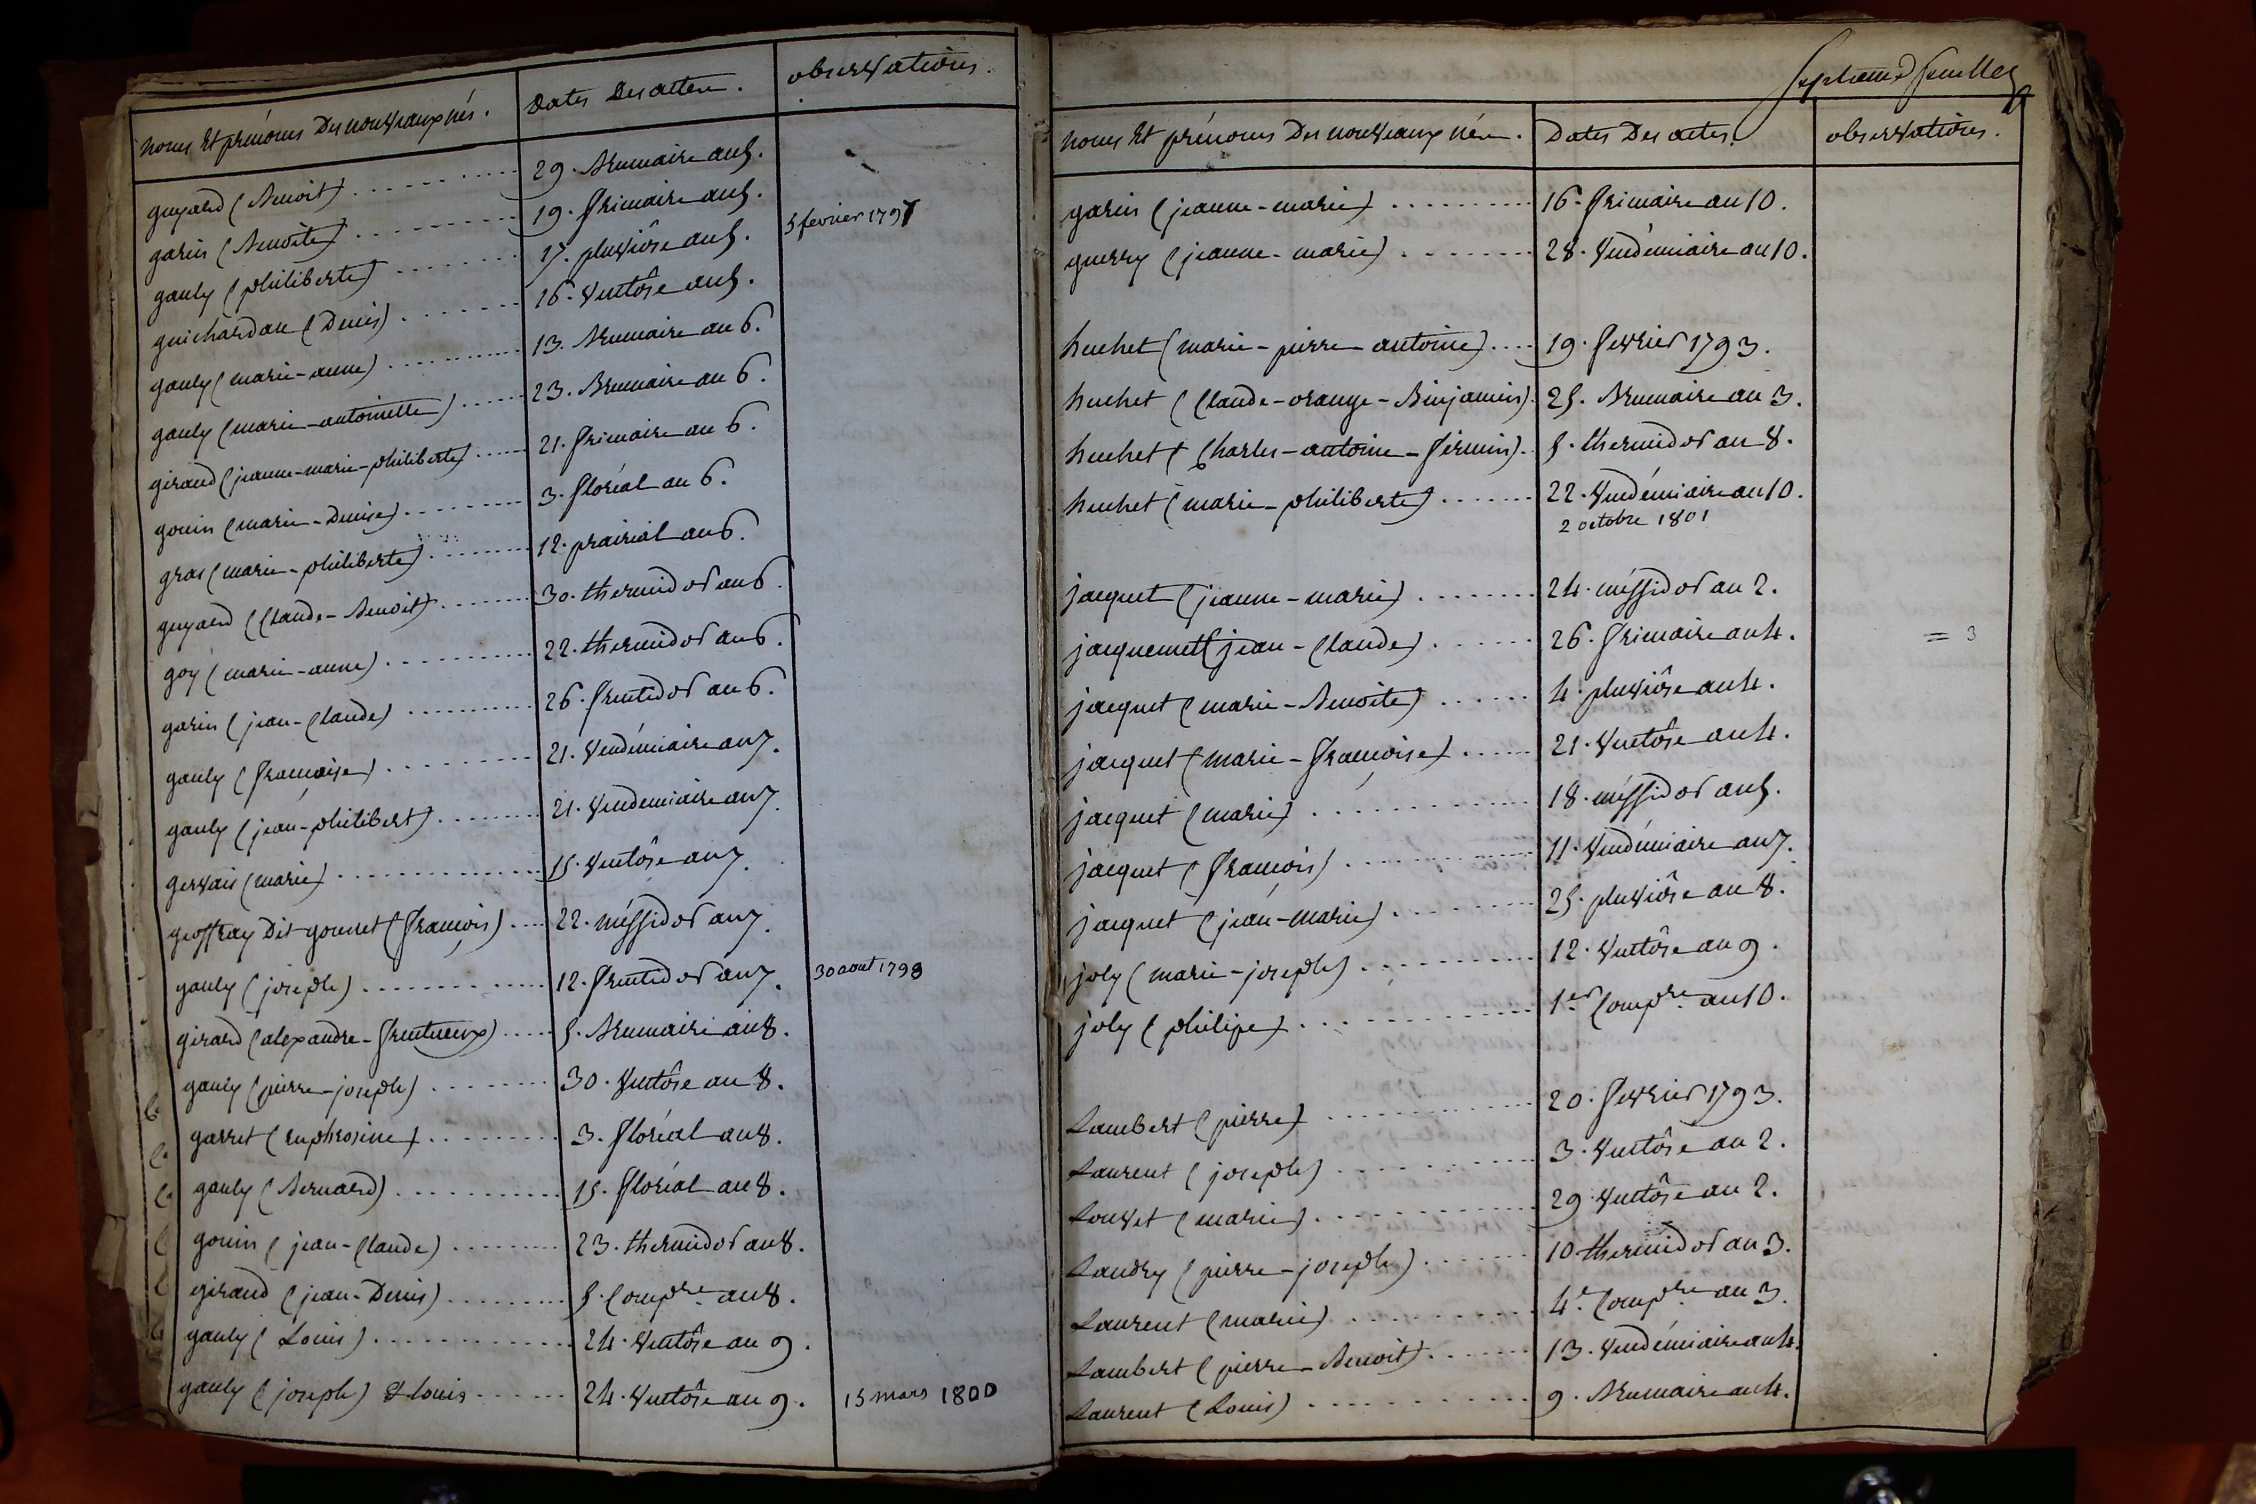 noms Et prénoms Des nouveaux nés. Dates Des actes. observations.
guyard (Benoit) 29. Brumaire an 5.
garin (Benoite) 19. frimaire an 5.
gauly (philiberte) 17. pluviôse an 5. 5 fevrier 1797
guichardan (Denis) 16. Ventôse an 5.
gauly (marie-anne) 13. Brumaire an 6.
gauly (marie-antoinette) 23. Brumaire an 6.
giraud (jeanne-marie-philiberte) 21. frimaire an 6.
gouin (marie-Denise) 3. floréal an 6.
gras (marie-philiberte) 12. prairial an 6.
guyard (Claude-Benoit) 30. thermidor an 6.
goy (marie-anne) 22. thermidor an 6.
garin (jean-Claude) 26. fructidor an 6.
gauly (françoise) 21. Vendémiaire an 7.
gauly (jean-philibert) 21. Vendemiaire an 7.
gervais (marie) 15. Ventôse an 7.
geoffray Dit gonnet (françois) 22. méssidor an 7.
gauly (joseph) 12. fructidor an 7. 30 aout 1798
girard (alexandre-fructueux) 5. Brumaire an 8.
gauly (pierre-joseph) 30. Ventôse an 8.
garret (euphrosine) 3. floréal an 8.
gauly (Bernard) 15. floréal an 8.
gouin (jean-Claude) 23. thermidor an 8.
giraud (jean-Denis) 5. Compre. an 8.
gauly (Louis) 24. Ventôse an 9.
gauly (joseph) & louis 24. Ventôse an 9. 15 mars 1800
Septieme feuillet
noms Et prénoms Des nouveaux nés. Dates Des actes. observations.
garin (jeanne-marie) 16. frimaire an 10.
guerry (jeanne-marie) 28. Vendémiaire an 10.
huchet (marie-pierre-antoine) 19. fevrier 1793.
huchet (Claude-orange-Binjamin) 25. Brumaire an 3.
huchet (Charles-antoine-firmin) 5. thermidor an 8.
huchet (marie-philiberte) 22. Vendémiaire an 10.
2 octobre 1801
jacquet (jeanne-marie) 24. méssidor an 2.
jacquemet (jean-Claude) 26. frimaire an 4. = 3
jacquet (marie-Benoite) 4. pluviôse an 4.
jacquet (marie-françoise) 21. Ventôse an 4.
jacquet (marie) 18. méssidor an 5.
jacquet (françois) 11. Vendémiaire an 7.
jacquet (jean-marie) 25. pluviôse an 8.
joly (marie-joseph) 12. Ventôse an 9.
joly (philipe) 1er Compre. an 10.
Lambert (pierre) 20. fevrier 1793.
Laurent (joseph) 3. Ventôse an 2.
Louvet (marie) 29. Ventôse an 2.
Landry (pierre-joseph) 10 thermidor an 3.
Laurent (marie) 4e. Compre an 3.
Lambert (pierre-Benoit) 13. Vendémiaire an 4.
Laurent (Louis) 9. Brumaire an 4.